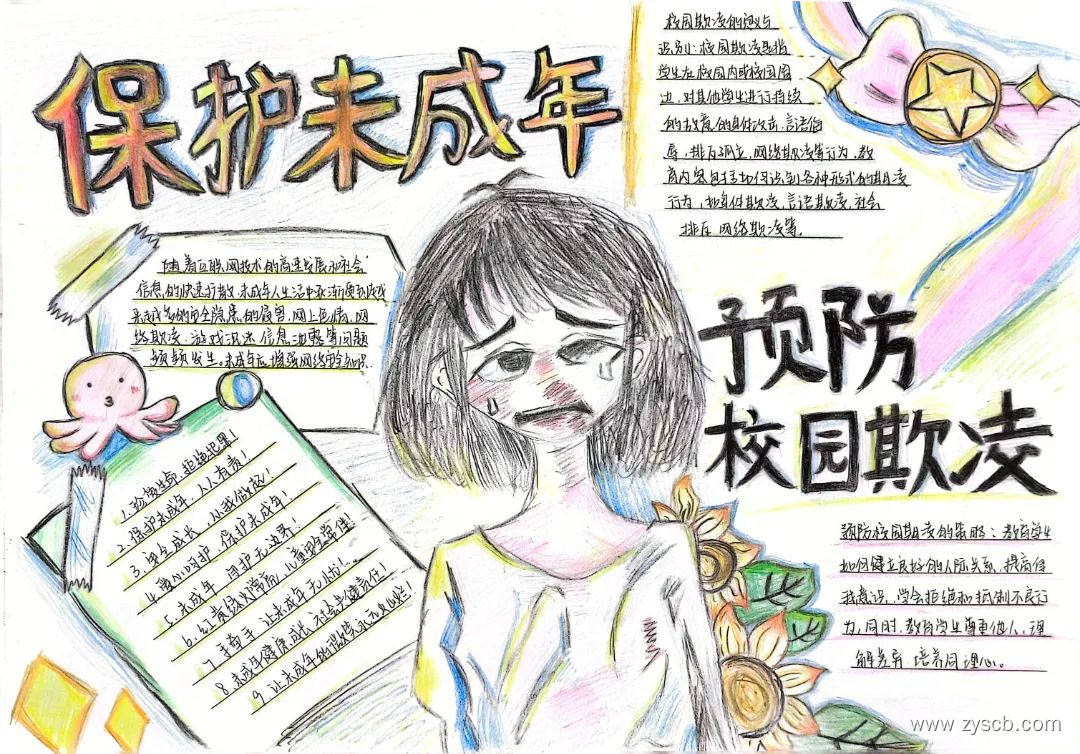 保护未成年
随着互联网技术的高速发展和社会
信息的快速扩散,未成年人生活中逐渐遭到
网
络欺凌、游戏沉迷、信息泄露等问题
频频发生。未成年应增强网络安全知识.
1.珍爱生命,拒绝犯罪!
2.保护未成年,人人有责!
3.安全成长,从我做起!
4.爱心呵护,保护未成年!
5.未成年,同护无边界!
6.
7.手牵手,让未成年无忧!
8.未成年健康成长,
9.让未成年的微笑永不
校园欺凌的定义与
识别:校园欺凌是指
学生在校园内或校园周
边,对其他学生进行持续
的故意的身体攻击、言语侮
辱、排斥孤立、网络欺凌等行为,教
育内容包括如何识别各种形式的欺凌
行为,如身体欺凌、言语欺凌、社会
排斥、网络欺凌等.
预防
校园欺凌
预防校园欺凌的策略:教育学生
如何建立良好的人际关系,提高自
我意识,学会拒绝和抵制不良行
为,同时,教育学生尊重他人,理
解差异,培养同理心。
www.zyscb.com